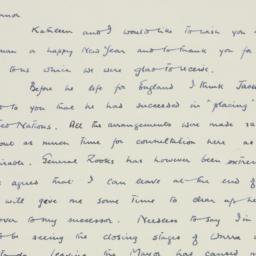 Kathleen and I would like to wish you a
man a happy New Year and to thank you for
tons which we were glad to receive.
Before we left for England I think Jack
to you that he had succeeded in "placing"
ted Nations. All the arrangements were made
out as much time for consultation here as
irable. General Rooks has however been extrem
agreed that I can leave at the end of
will give me some time to clear up he
over to my successor. Needless to say I'm
to be seeing the closing stages of Unrra
leaving the Mayor has caused